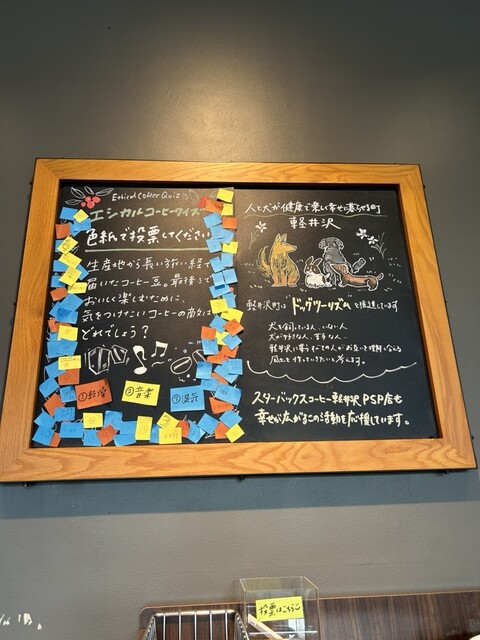 Ethical Coffee Quiz
エシカルコーヒークイズ
色紙で投票してください
生産地から長い旅を経て
届いたコーヒー豆。最後まで
おいしく楽しむために、
気をつけたいコーヒーの敵は
どれでしょう?
①乾燥
②音楽
③湿気
人と犬が健康で楽しく幸せに暮らせる町
軽井沢
軽井沢町は ドッグツーリズム を推進しています
犬を飼っている人、いない人
犬が好きな人、苦手な人…
軽井沢に暮らすすべての人がお互いを理解し合える
風土を作っていきたいと考えます。
スターバックスコーヒー軽井沢PSP店も
幸せが広がるこの活動を応援しています。
投票はこちら